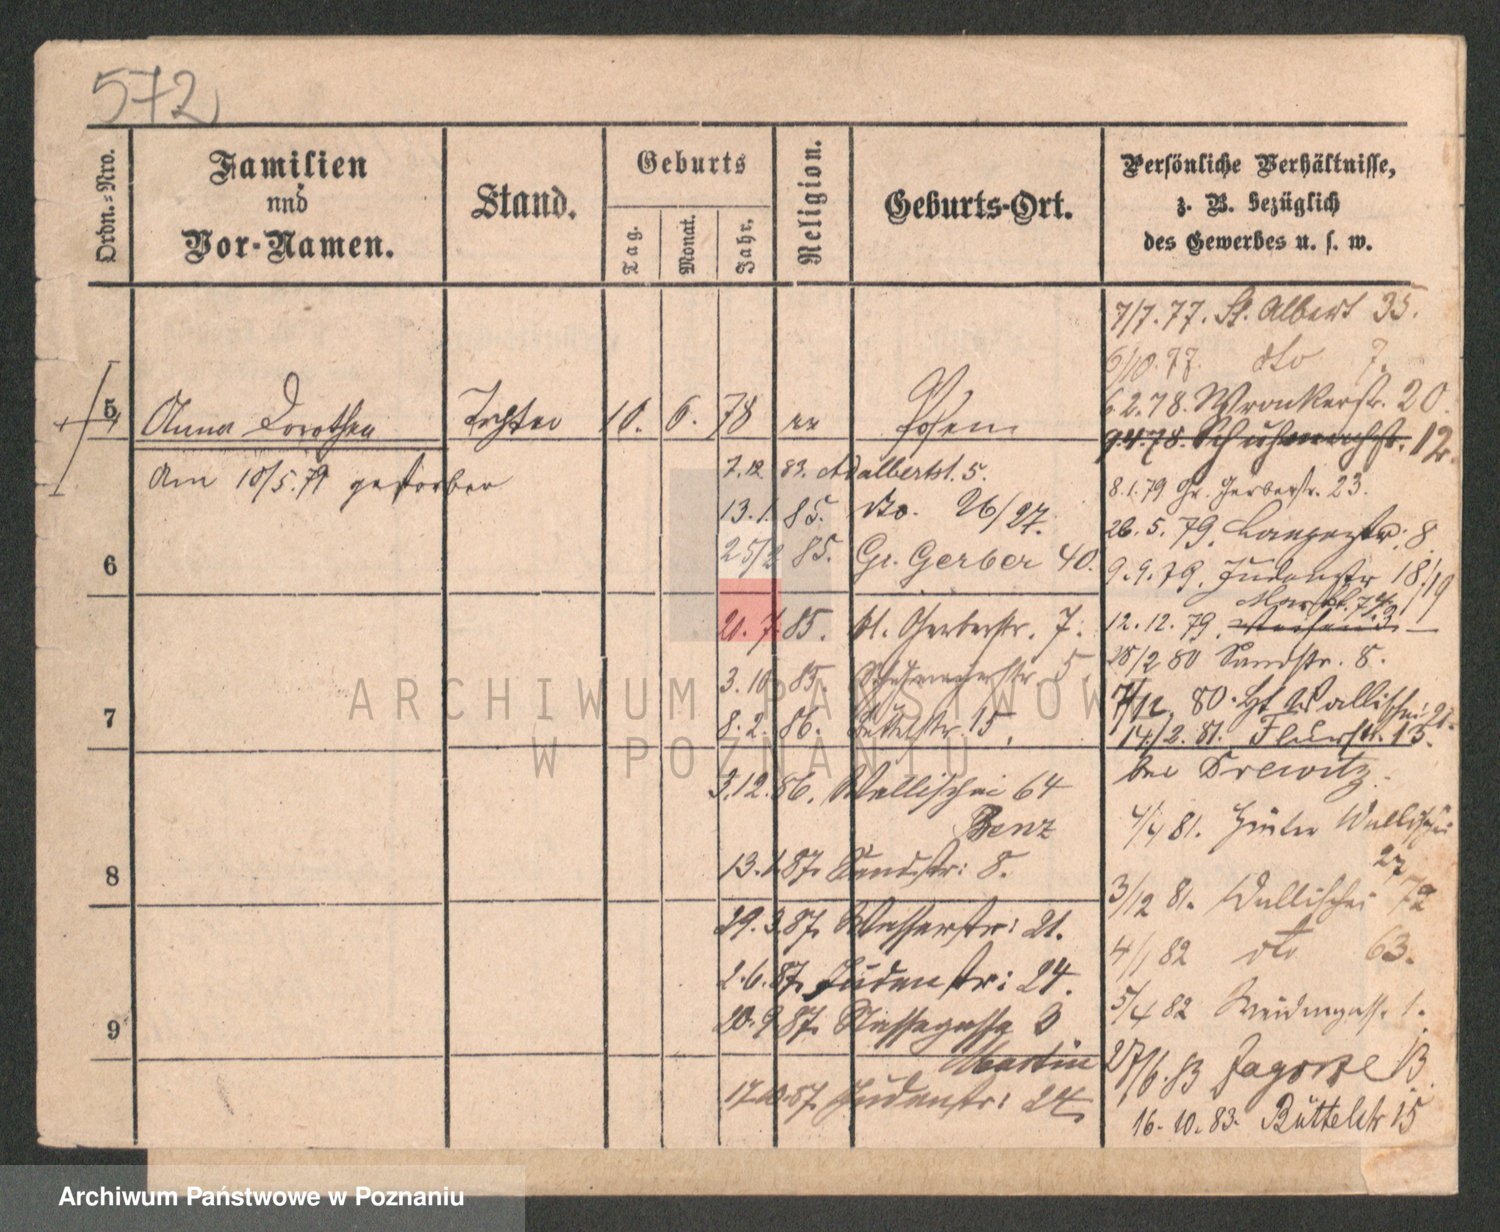 572
Ordn.-Nro.
Familien
und
Vor-Namen.
Stand.
Geburts
Tag.
Monat.
Jahr.
Religion.
Geburts-Ort.
Persönliche Verhältnisse,
z. B. bezüglich
des Gewerbes u. s. w.
5
Anna Dorothea
Tochter
10. 6. 78
Posen
am 10/5. 79 gestorben
6
7
8
9
7.12 83. Adalbertst. 5.
13.1. 85. dto. 26/27.
25/2 85. Gr. Gerber 40.
21. 7. 85. Kl. Gerberstr. 7.
3.10. 85. Schuhmacherstr 5.
8.2. 86. Büttelstr. 15.
3.12.86. Wallischei 64
Benz
13.1.87. Sandstr: 8.
29.3.87. Wasserstr: 21.
2.6.87. Judenstr: 24.
20.9.87. Nassegasse 3
Martin
17.10.87. Judenstr: 24.
7/7.77. St. Albert 35.
6/10.77. dto 7.
6.2.78. Wronkerstr. 20.
9.4.78. Schuhmachstr. 12.
8.1.79 Gr. Gerberstr. 23.
26.5.79. Langestr. 8.
9.9.79. Judenstr 18/19
12.12.79.
28/2 80 Sandstr. 8.
7/12 80. Wallischei
14/2.81. Flurstr. 13.
bei Drewitz.
4/4 81. Hinter Wallischei
27
3/12 81. Wallischei 72
4/1 82 dto 63.
5/4 82 Weidengasse 1.
27/6.83 Zagorze 13.
16.10.83. Büttelstr 15
ARCHIWUM PAŃSTWOWE
W POZNANIU
Archiwum Państwowe w Poznaniu